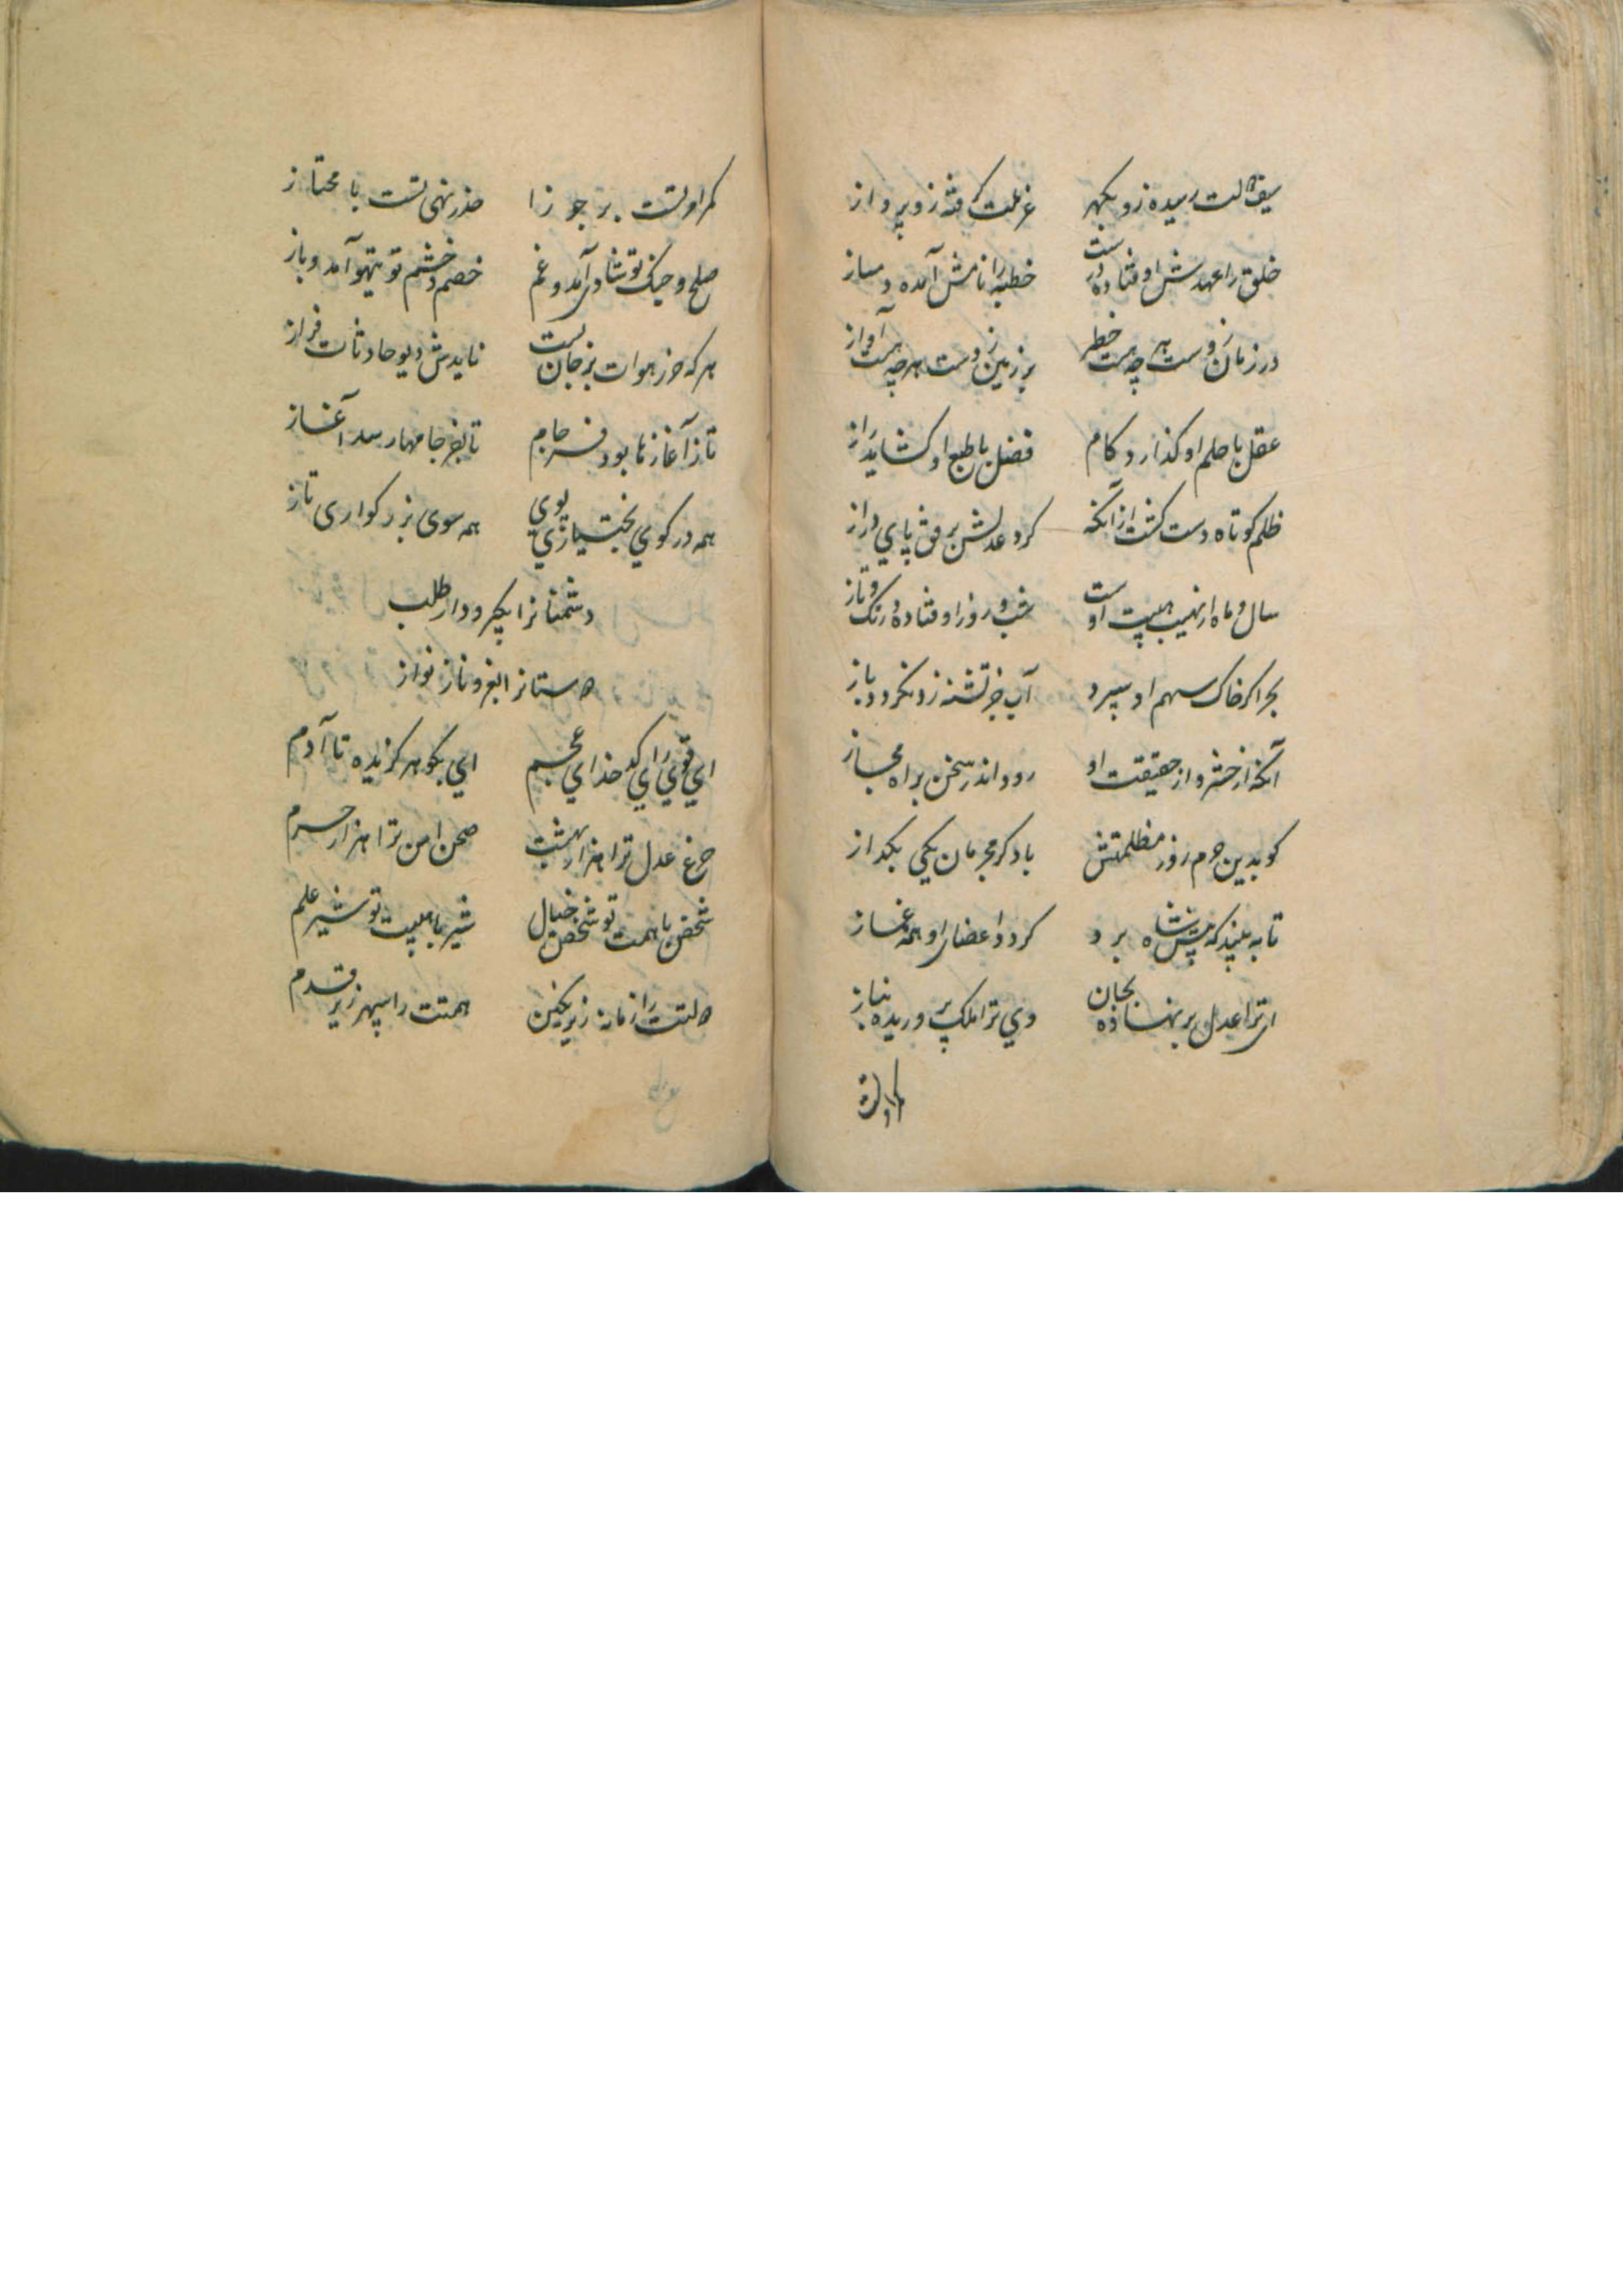 رسیده زو بگهر
غرمت گرفته زو پرواز
خلق را عهدش اوفتاده درست
خطبه را نامش آمده دمساز
در زمان زوست هر چه هست خطر
بر زمین زوست هر چه هست آواز
عقل با حلم او گذارد کام
فضل با طبع او گشاید راز
ظلم کوتاه دست گشت از آنکه
کرد عدلش برفق پای دراز
سال و ماه از نهیب هیبت اوست
شب و روز اوفتاده در تک و تاز
بحر اگر خاک سهم او سپرد
آب جز تشنه زو نگردد باز
آنکه از خشم و از حقیقت او
رود اندر سخن براه مجاز
کو بدین جرم روز مظلمتش
باد گر مجرمان یکی بگداز
تا به بیند که پیش شاه برد
کردد اعضای او همه غماز
ای ترا عدل بر نهاده بجان
وی ترا ملک پروریده بناز
کمر او تست بر جوزا
حذر نهی تست با محتاز
صلح و جنگ تو شادی آمد و غم
خصم و خشم تو تیهو آمد و باز
هر که حرز هوات بر جان بست
نایدش دیو حادثات فراز
تا ز آغازها بود فرجام
تا بفرجامها رسد آغاز
همه در کوی بختیاری پوی
همه سوی بزرکواری تاز
دشمنانرا بگیر و دار طلب
دوستانرا بعز و ناز نواز
ای قوی رای کدخدای عجم
ای بگوهر گزیده تا آدم
چرغ عدل ترا هزار بهشت
صحن امن ترا هزار حرم
شخص با همت تو شخص خیال
شیر با هیبت تو شیر علم
دولتت را زمانه زیر نگین
همتت را سپهر زیر قدم